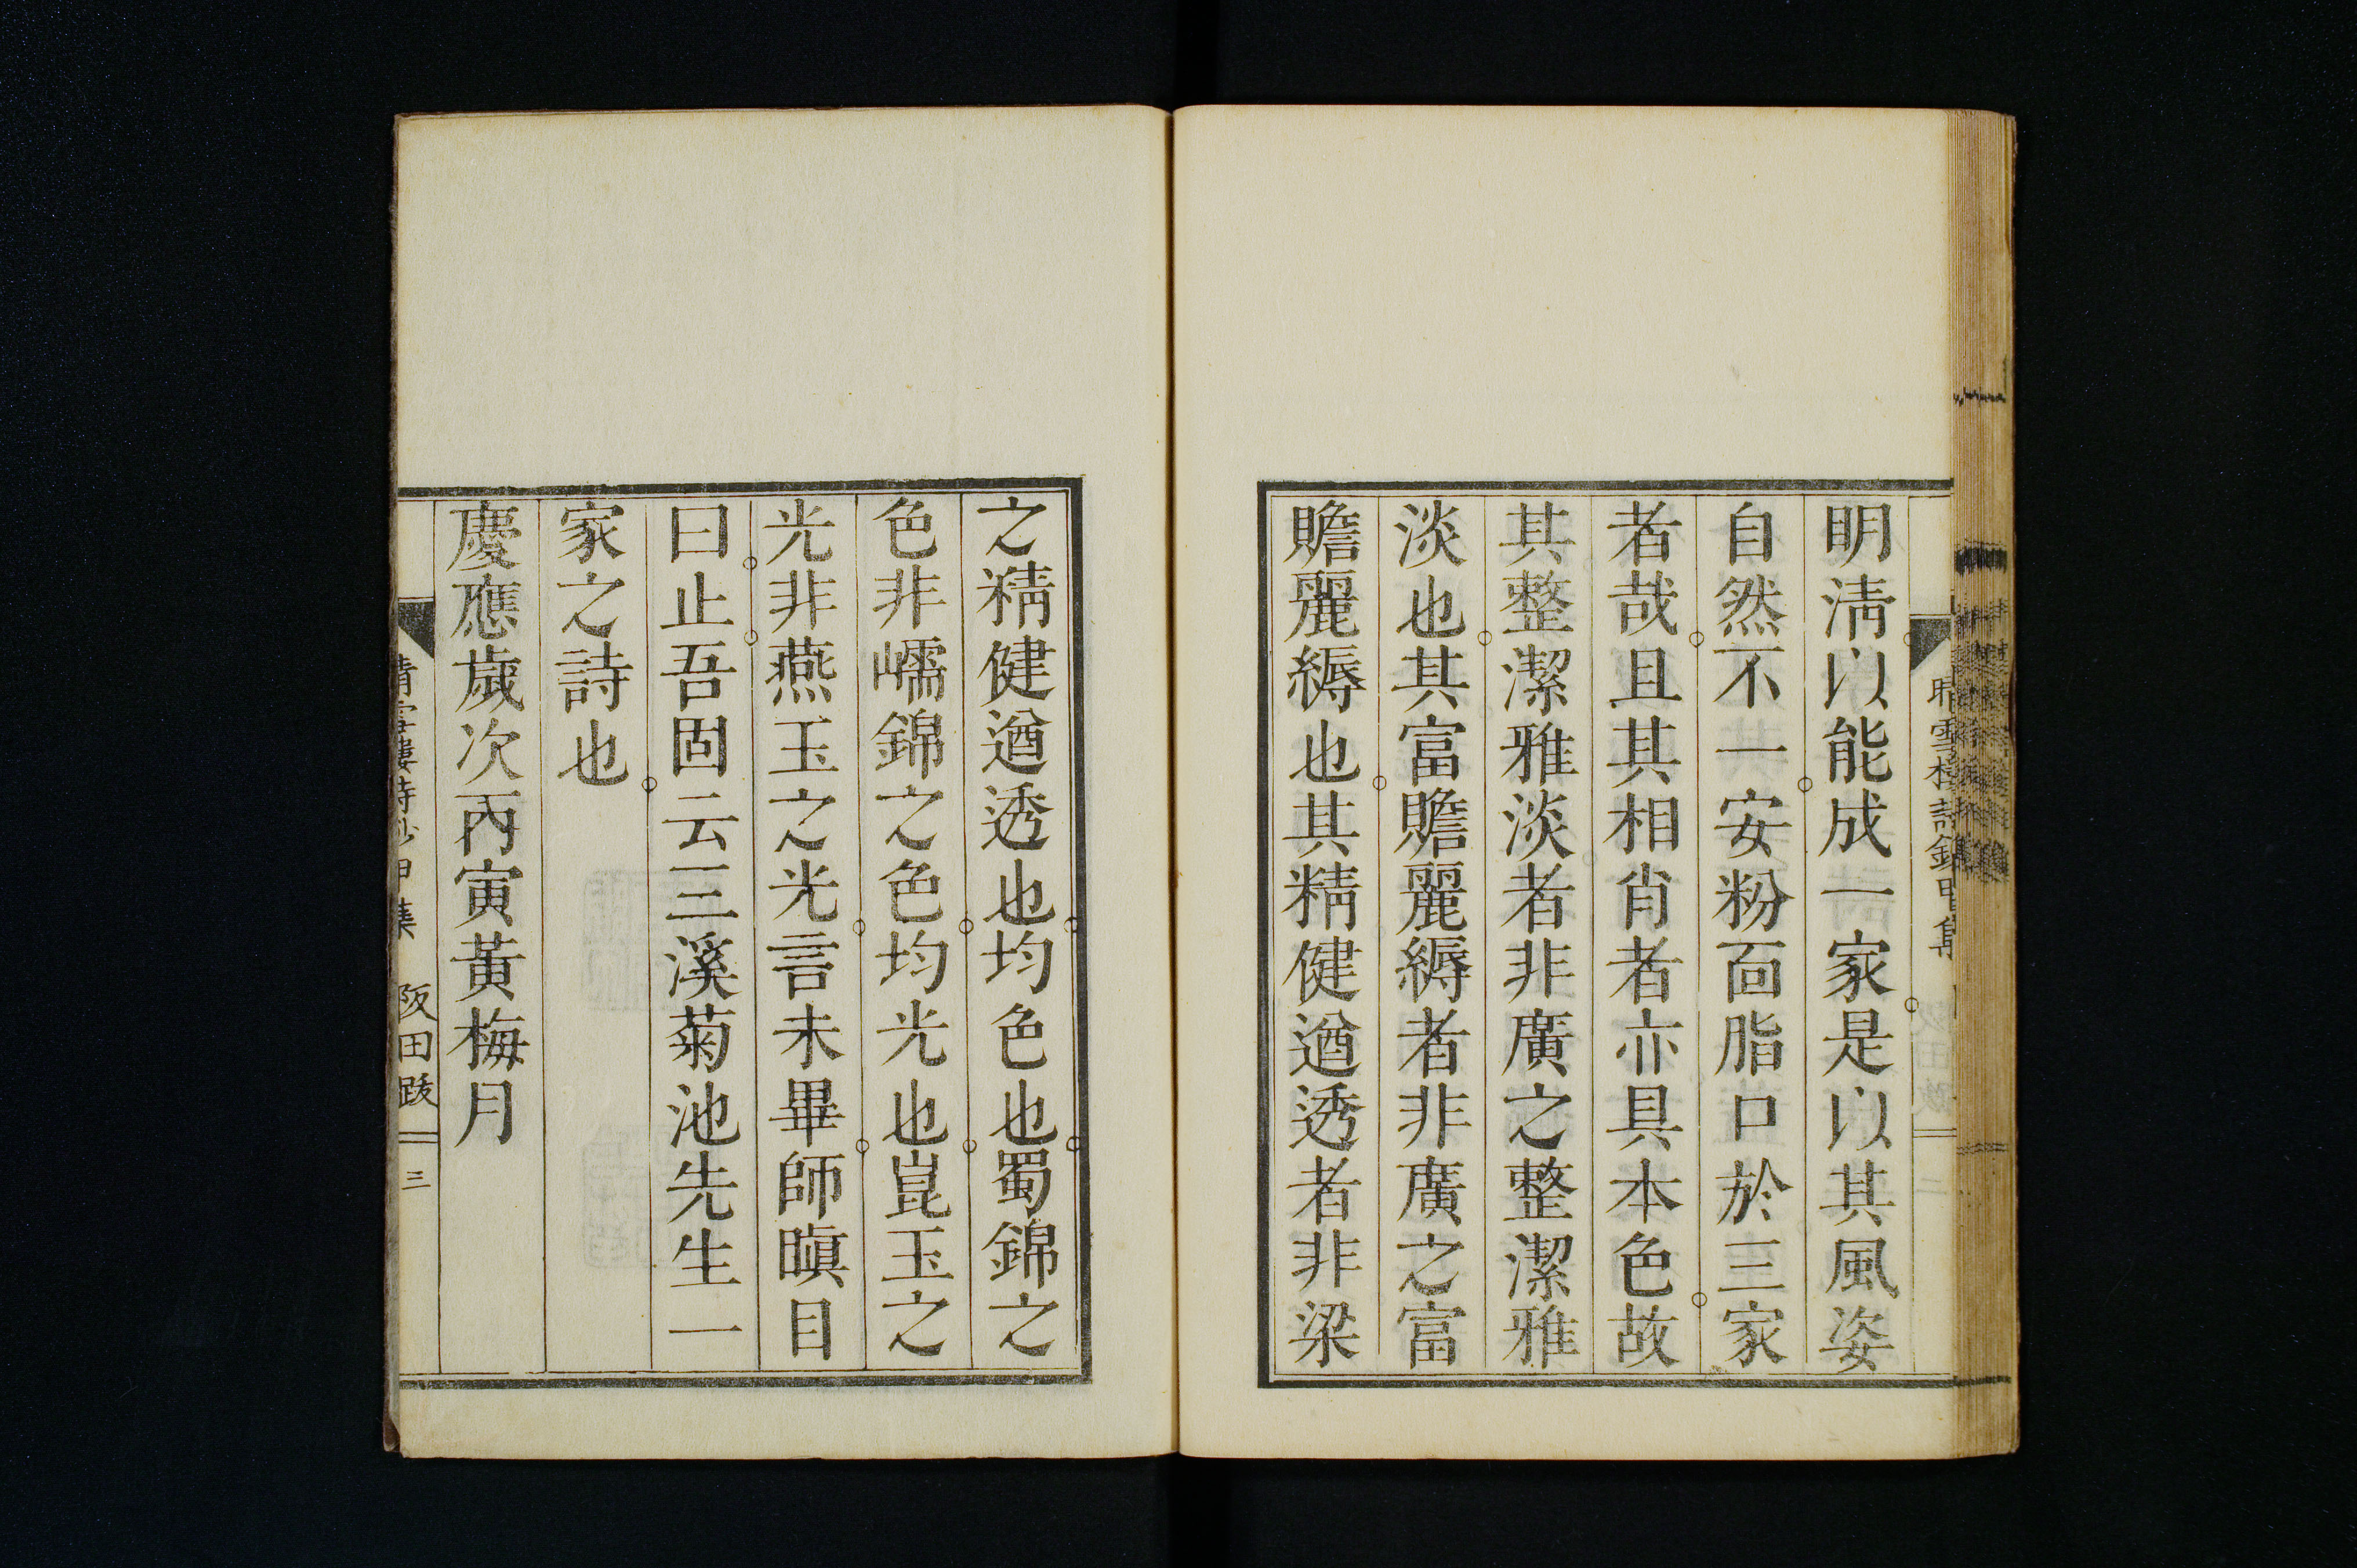 明淸以能成一家是以其風姿
自然不一安粉面脂口於三家
者哉且其相肖者亦具本色故
其整潔雅淡者非廣之整潔雅
淡也其富贍麗縟者非廣之富
贍麗縟也其精健遒透者非梁
之精健遒透也均色也蜀錦之
色非嶿錦之色均光也崑玉之
光非燕玉之光言未畢師瞋目
曰止吾固云三溪菊池先生一
家之詩也
慶應歲次丙寅黃梅月
阪田跋
三